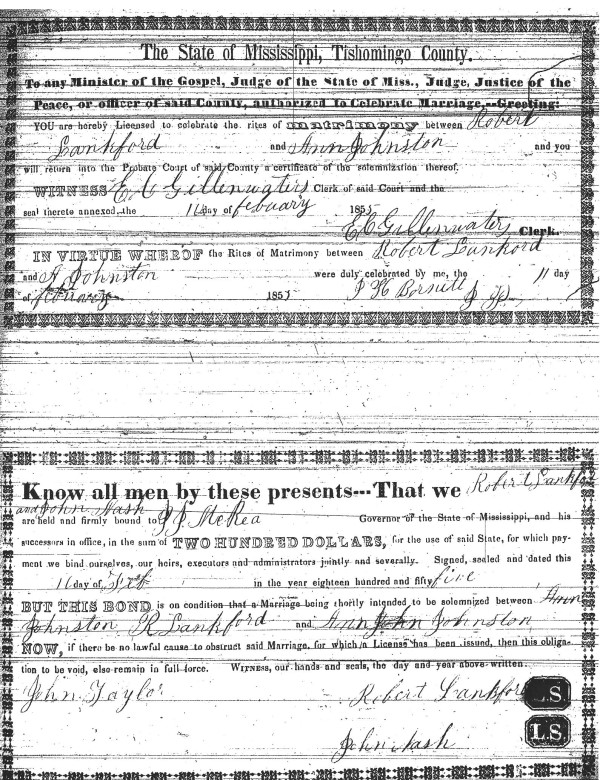 The State of Mississippi, Tishomingo County.
To any Minister of the Gospel, Judge of the State of Miss., Judge, Justice of the
Peace, or officer of said County, authorized to Celebrate Marriage,--Greeting:
YOU are hereby Licensed to celebrate the rites of matrimony between Robert
Lankford and Ann Johnston and you
will return into the Probate Court of said County a certificate of the solemnization thereof.
WITNESS E C Gillenwaters Clerk of said Court and the
seal thereto annexed, the 11 day of febuary 1855
E C Gillenwaters Clerk.
IN VIRTUE WHEROF the Rites of Matrimony between Robert Lankord
and A Johnston were duly celebrated by me, the 11 day
of february 1855 J P
Know all men by these presents---That we Robert Lankford
and John Nash
are held and firmly bound to McRea Governor of the State of Mississippi, and his
successors in office, in the sum of TWO HUNDRED DOLLARS, for the use of said State, for which pay-
ment we bind ourselves, our heirs, executors and administrators jointly and severally. Signed, sealed and dated this
11 day of in the year eighteen hundred and fifty five
BUT THIS BOND is on condition that a Marriage being shortly intended to be solemnized between Ann
Johnston R Lankford and Ann Johnston
NOW, if there be no lawful cause to obstruct said Marriage, for which a License has been issued, then this obliga-
tion to be void, else remain in full force. WITNESS, our hands and seals, the day and year above written.
John Taylor Robert Lankford L.S.
John Nash L.S.